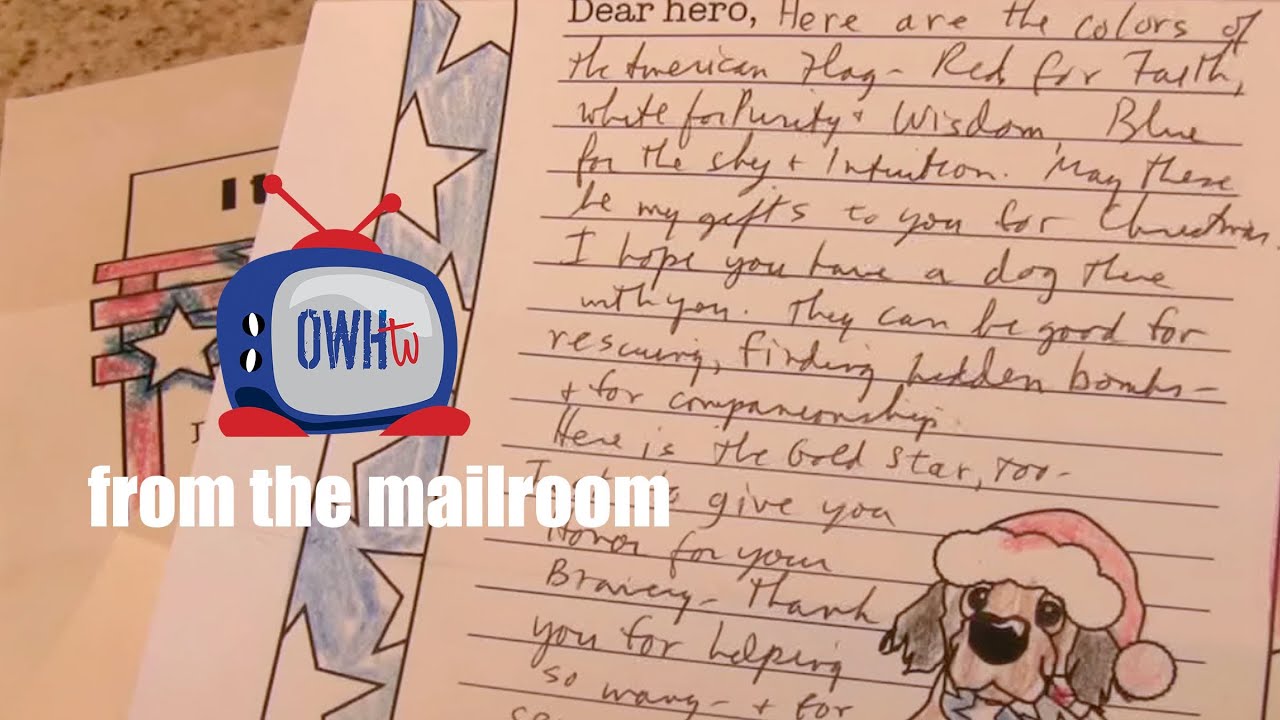 Dear hero, Here are the colors of
the American Flag - Red for Faith,
white for Purity + Wisdom, Blue
for the sky + Intuition. May these
be my gifts to you for Christmas
I hope you have a dog there
with you. They can be good for
rescuing, finding hidden bombs -
+ for companionship.
Here is the Gold Star, too -
give you
Honor for your
Bravery - Thank
you for helping
so many - + for
It
J
OWHtv
from the mailroom